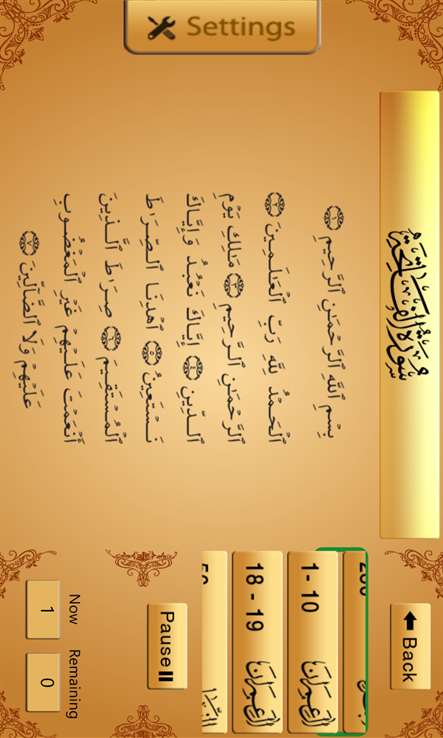 Settings
سورة الفاتحة
بِسْمِ ٱللَّهِ ٱلرَّحْمَـٰنِ ٱلرَّحِيمِ ١
ٱلْحَمْدُ لِلَّهِ رَبِّ ٱلْعَـٰلَمِينَ ٢
ٱلرَّحْمَـٰنِ ٱلرَّحِيمِ ٣ مَـٰلِكِ يَوْمِ
ٱلدِّينِ ٤ إِيَّاكَ نَعْبُدُ وَإِيَّاكَ
نَسْتَعِينُ ٥ ٱهْدِنَا ٱلصِّرَٰطَ
ٱلْمُسْتَقِيمَ ٦ صِرَٰطَ ٱلَّذِينَ
أَنْعَمْتَ عَلَيْهِمْ غَيْرِ ٱلْمَغْضُوبِ
عَلَيْهِمْ وَلَا ٱلضَّآلِّينَ ٧
Back
200
1 - 10 آل عمران
18 - 19 آل عمران
59
Pause
Now Remaining
1 0